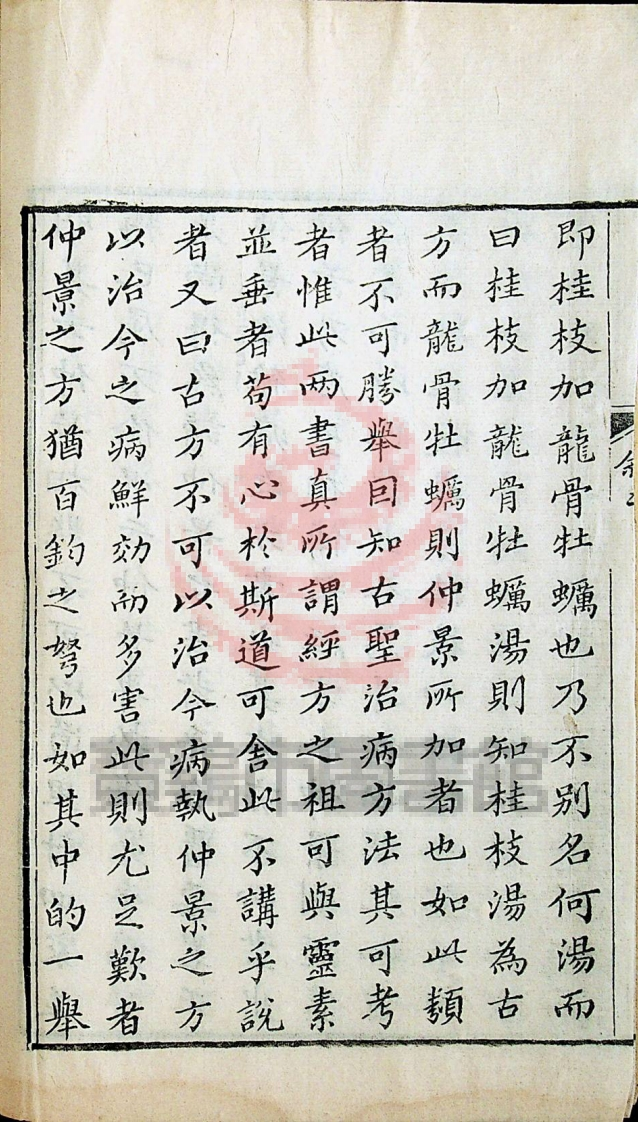 即桂枝加龍骨牡蠣也乃不别名何湯而
曰桂枝加龍骨牡蠣湯則知桂枝湯為古
方而龍骨牡蠣則仲景所加者也如此類
者不可勝舉囙知古聖治病方法其可考
者惟此两書真所謂經方之祖可與靈素
並垂者苟有心於斯道可舍此不講乎說
者又曰古方不可以治今病執仲景之方
以治今之病鮮効而多害此則尤足歎者
仲景之方猶百鈞之弩也如其中的一舉